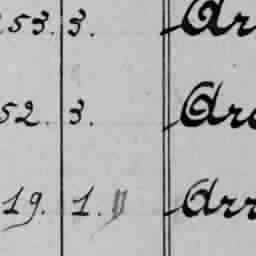 53. 3. Ar
52. 3. Are
19. 1. Arr